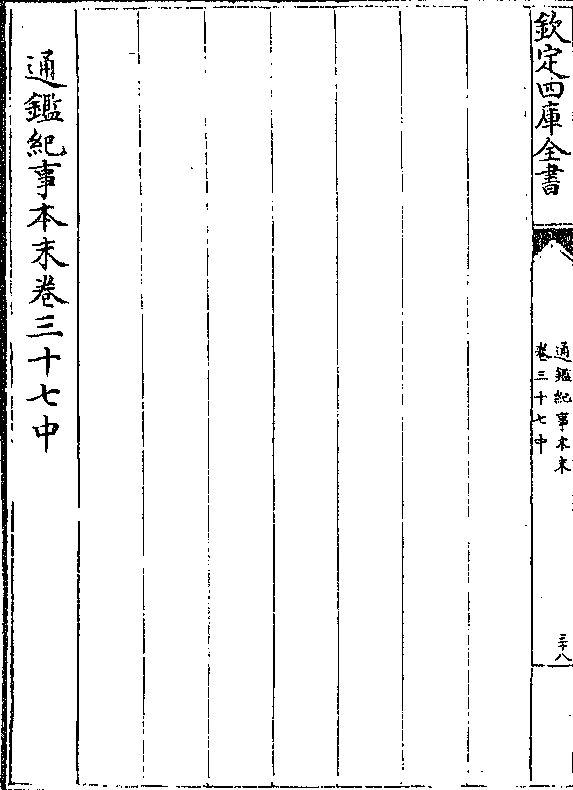 欽定四庫全書
通鑑紀事本末
卷三十七中
三十八
通鑑紀事本末卷三十七中